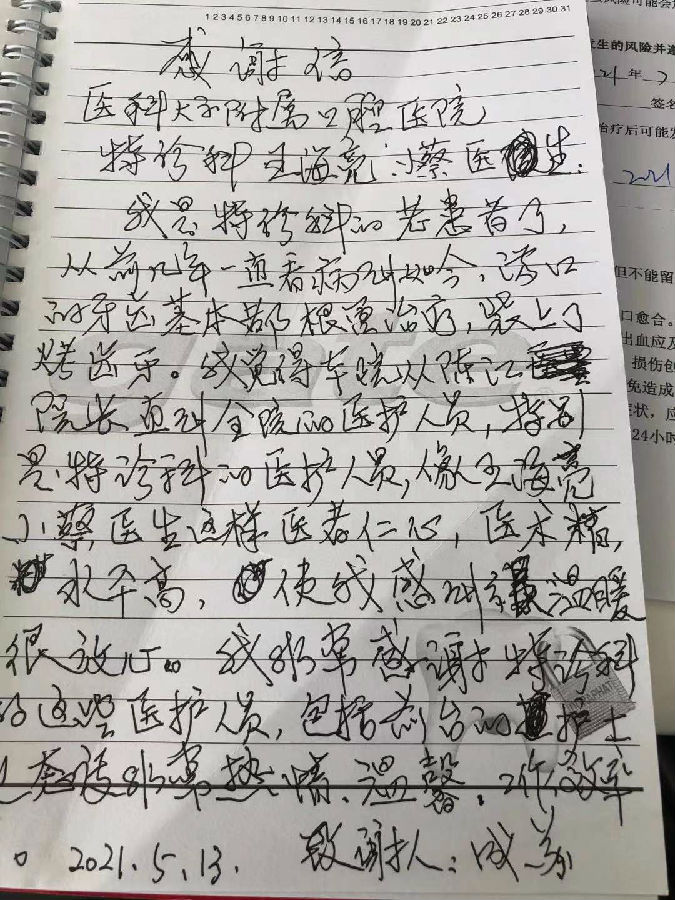 1 2 3 4 5 6 7 8 9 10 11 12 13 14 15 16 17 18 19 20 21 22 23 24 25 26 27 28 29 30 31
感谢信
医科大学附属口腔医院
特诊科王海亮、小蔡医生:
我是特诊科的老患者了,
从前几年一直看病到如今,满口
的牙齿基本都根管治疗,装上了
烤瓷牙。我觉得本院从陈江
院长直到全院的医护人员,特别
是特诊科的医护人员,像王海亮
小蔡医生这样医者仁心,医术精,
水平高,使我感到温暖
很放心。我非常感谢特诊科
的这些医护人员,包括前台的护士
非常热情、温馨.工作效率
。2021.5.13. 致谢人:成
生的风险并
年
签名
治疗后可能发
2021
但不能留
口愈合。
出血应及
损伤创
免造成
症状,应
24小时